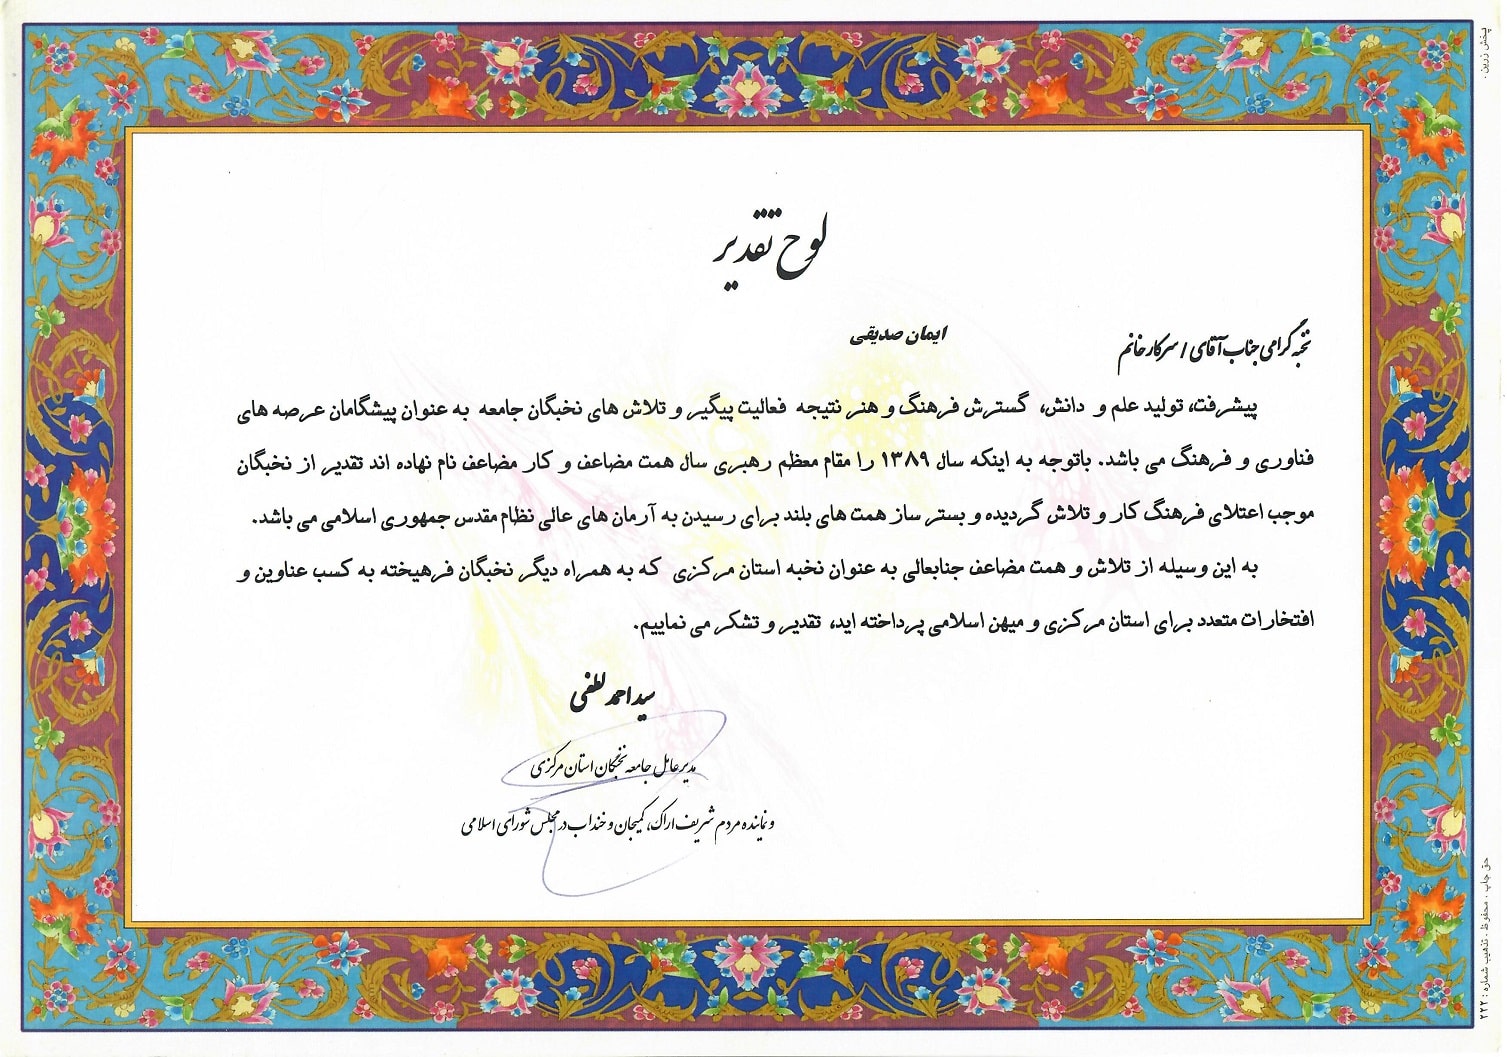 لوح تقدیر
نخبه گرامی جناب آقای / سرکار خانم ایمان صدیقی
پیشرفت، تولید علم و دانش، گسترش فرهنگ و هنر نتیجه فعالیت پیگیر و تلاش های نخبگان جامعه به عنوان پیشگامان عرصه های
فناوری و فرهنگ می باشد. باتوجه به اینکه سال ۱۳۸۹ را مقام معظم رهبری سال همت مضاعف و کار مضاعف نام نهاده اند تقدیر از نخبگان
موجب اعتلای فرهنگ کار و تلاش گردیده و بستر ساز همت های بلند برای رسیدن به آرمان های عالی نظام مقدس جمهوری اسلامی می باشد.
به این وسیله از تلاش و همت مضاعف جنابعالی به عنوان نخبه استان مرکزی که به همراه دیگر نخبگان فرهیخته به کسب عناوین و
افتخارات متعدد برای استان مرکزی و میهن اسلامی پرداخته اید، تقدیر و تشکر می نماییم.
سید احمد لطفی
مدیر عامل جامعه نخبگان استان مرکزی
و نماینده مردم شریف اراک، کمیجان و خنداب در مجلس شورای اسلامی
پخش زرین .
حق چاپ . محفوظ . تذهیب شماره : ۲۲۲